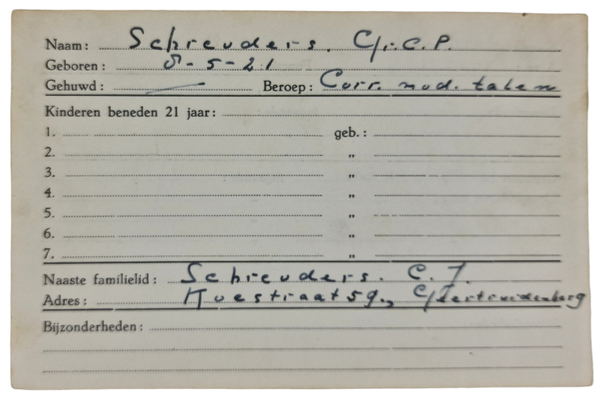 Naam: Schreuders. G.C.P.
Geboren: 8-5-21
Gehuwd: — Beroep: Corr. mod. talen
Kinderen beneden 21 jaar:
1. geb.:
2. "
3. "
4. "
5. "
6. "
7. "
Naaste familielid: Schreuders. C. J.
Adres: Koestraat 59., Geertruidenberg
Bijzonderheden: